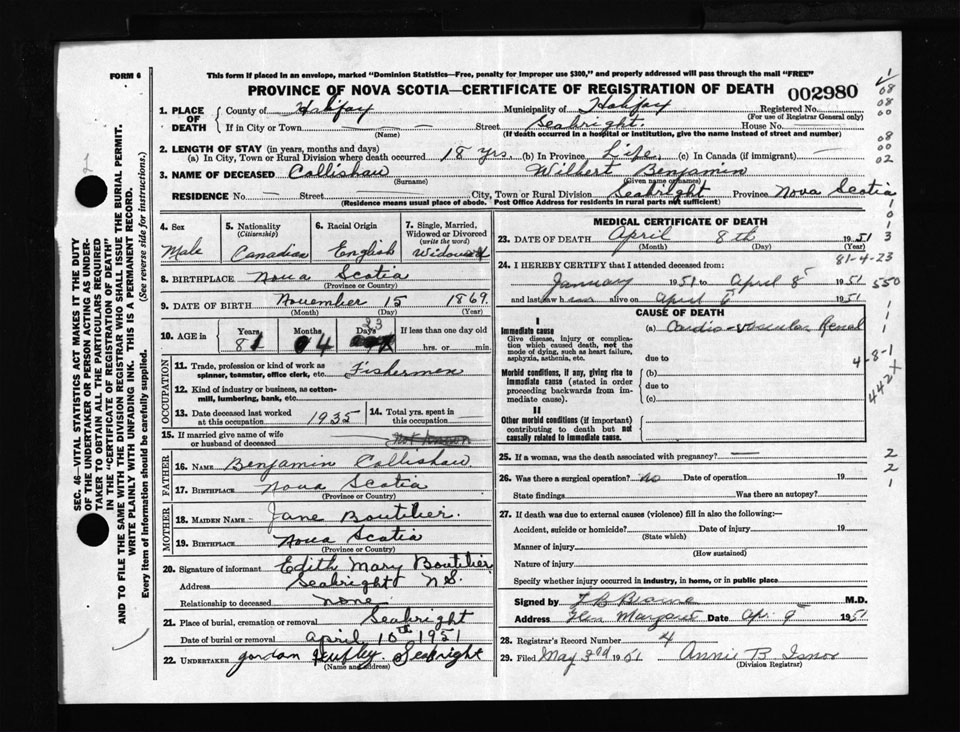 FORM 6
This form if placed in an envelope, marked "Dominion Statistics—Free, penalty for improper use $300," and properly addressed will pass through the mail "FREE"
PROVINCE OF NOVA SCOTIA—CERTIFICATE OF REGISTRATION OF DEATH 002980
1. PLACE OF DEATH County of Halifax Municipality of Halifax Registered No.
(For use of Registrar General only)
If in City or Town (Name) Street Seabright. House No.
(If death occurred in a hospital or institution, give the name instead of street and number)
2. LENGTH OF STAY (in years, months and days)
(a) In City, Town or Rural Division where death occurred 18 yrs. (b) In Province Life, (c) In Canada (if immigrant)
3. NAME OF DECEASED Collishaw Wilbert Benjamin
(Surname) (Given name or names)
RESIDENCE No. Street City, Town or Rural Division Seabright Province Nova Scotia
(Residence means usual place of abode. Post Office Address for residents in rural parts not sufficient)
4. Sex Male
5. Nationality (Citizenship) Canadian
6. Racial Origin English
7. Single, Married, Widowed or Divorced (write the word) Widowed
8. BIRTHPLACE Nova Scotia
(Province or Country)
9. DATE OF BIRTH November 15 1869
(Month) (Day) (Year)
10. AGE in Years Months Days If less than one day old
81 4 23 hrs. or min.
OCCUPATION
11. Trade, profession or kind of work as spinner, teamster, office clerk, etc. Fishermen
12. Kind of industry or business, as cotton-mill, lumbering, bank, etc.
13. Date deceased last worked at this occupation 1935
14. Total yrs. spent in this occupation
15. If married give name of wife or husband of deceased
FATHER
16. NAME Benjamin Collishaw.
17. BIRTHPLACE Nova Scotia
(Province or Country)
MOTHER
18. MAIDEN NAME Jane Boutilier.
19. BIRTHPLACE Nova Scotia
(Province or Country)
20. Signature of informant Edith Mary Boutilier
Address Seabright N.S.
Relationship to deceased none
21. Place of burial, cremation or removal Seabright
Date of burial or removal April 10th 1951
22. UNDERTAKER Gordon Seabright
(Name and address)
MEDICAL CERTIFICATE OF DEATH
23. DATE OF DEATH April 8th 1951
(Month) (Day) (Year)
81-4-23
24. I HEREBY CERTIFY that I attended deceased from:
January 1951 to April 8 1951
and last saw h alive on April 6 1951
550
CAUSE OF DEATH
I
Immediate cause
Give disease, injury or complication which caused death, not the mode of dying, such as heart failure, asphyxia, asthenia, etc.
(a) Cardio-vascular Renal
due to
4-8-1
Morbid conditions, if any, giving rise to immediate cause (stated in order proceeding backwards from immediate cause).
(b)
due to
(c)
442x
II
Other morbid conditions (if important) contributing to death but not causally related to immediate cause.
25. If a woman, was the death associated with pregnancy?
26. Was there a surgical operation? no Date of operation 19
State findings Was there an autopsy?
27. If death was due to external causes (violence) fill in also the following:—
Accident, suicide or homicide? Date of injury 19
(State which)
Manner of injury
(How sustained)
Nature of injury
Specify whether injury occurred in industry, in home, or in public place
Signed by M.D.
Address Glen Margaret Date Ap. 9 1951
28. Registrar's Record Number 4
29. Filed May 3rd 1951 Annie B. Isnor
(Division Registrar)
SEC. 46—VITAL STATISTICS ACT MAKES IT THE DUTY
OF THE UNDERTAKER OR PERSON ACTING AS UNDERTAKER TO OBTAIN ALL THE PARTICULARS REQUIRED
IN THE "CERTIFICATE OF REGISTRATION OF DEATH"
AND TO FILE THE SAME WITH THE DIVISION REGISTRAR WHO SHALL ISSUE THE BURIAL PERMIT.
WRITE PLAINLY WITH UNFADING INK. THIS IS A PERMANENT RECORD.
Every item of information should be carefully supplied. (See reverse side for instructions.)